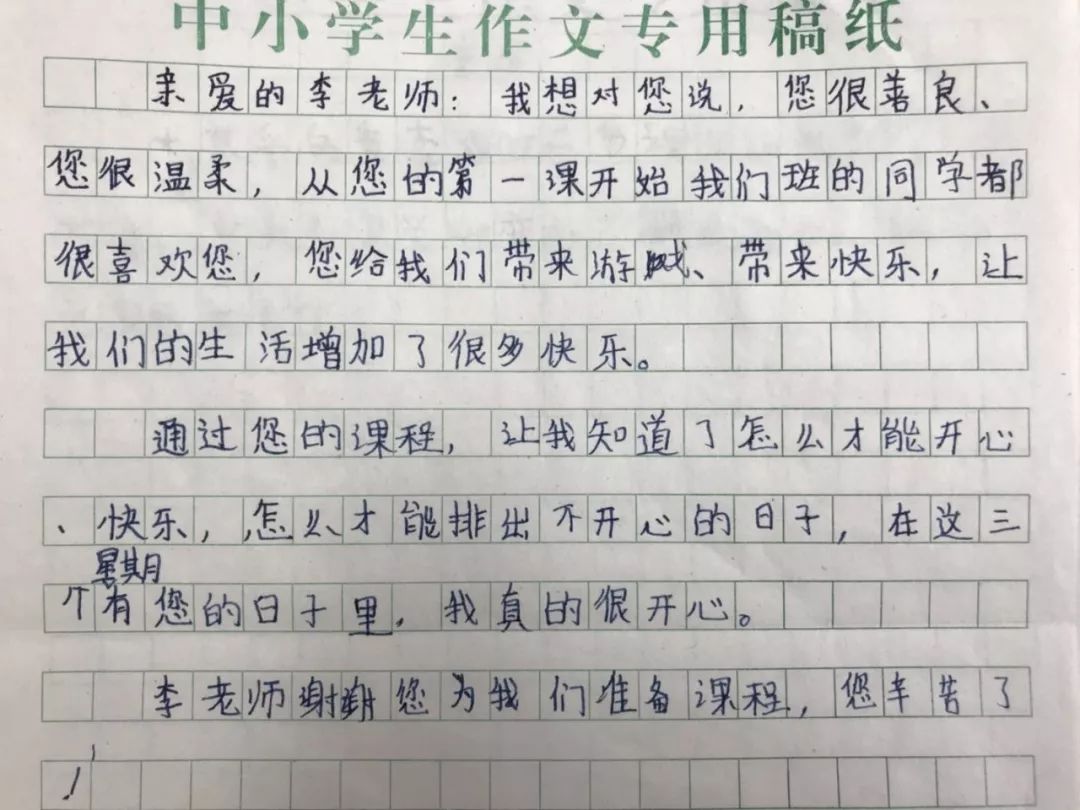 中小学生作文专用稿纸
亲爱的李老师：我想对您说，您很善良、
您很温柔，从您的第一课开始我们班的同学都
很喜欢您，您给我们带来游戏、带来快乐，让
我们的生活增加了很多快乐。
通过您的课程，让我知道了怎么才能开心
、快乐，怎么才能排出不开心的日子，在这三
星期
个有您的日子里，我真的很开心。
李老师谢谢您为我们准备课程，您辛苦了
！